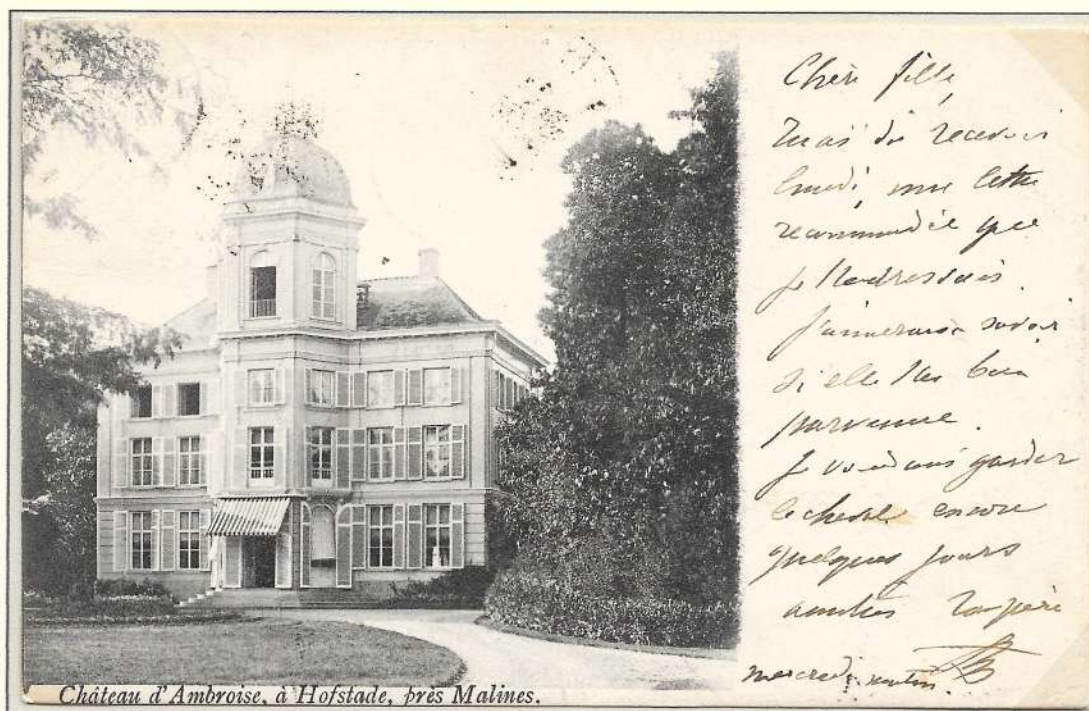 Chère fille,
Tu as dû recevoir
lundi, une lettre
recommandée que
je t'adressais.
J'aimerais savoir
si elle t'es bien
parvenue.
Je voudrais garder
encore
quelques jours
amitiés Ton père
mercredi matin.
Château d'Ambroise, à Hofstade, près Malines.